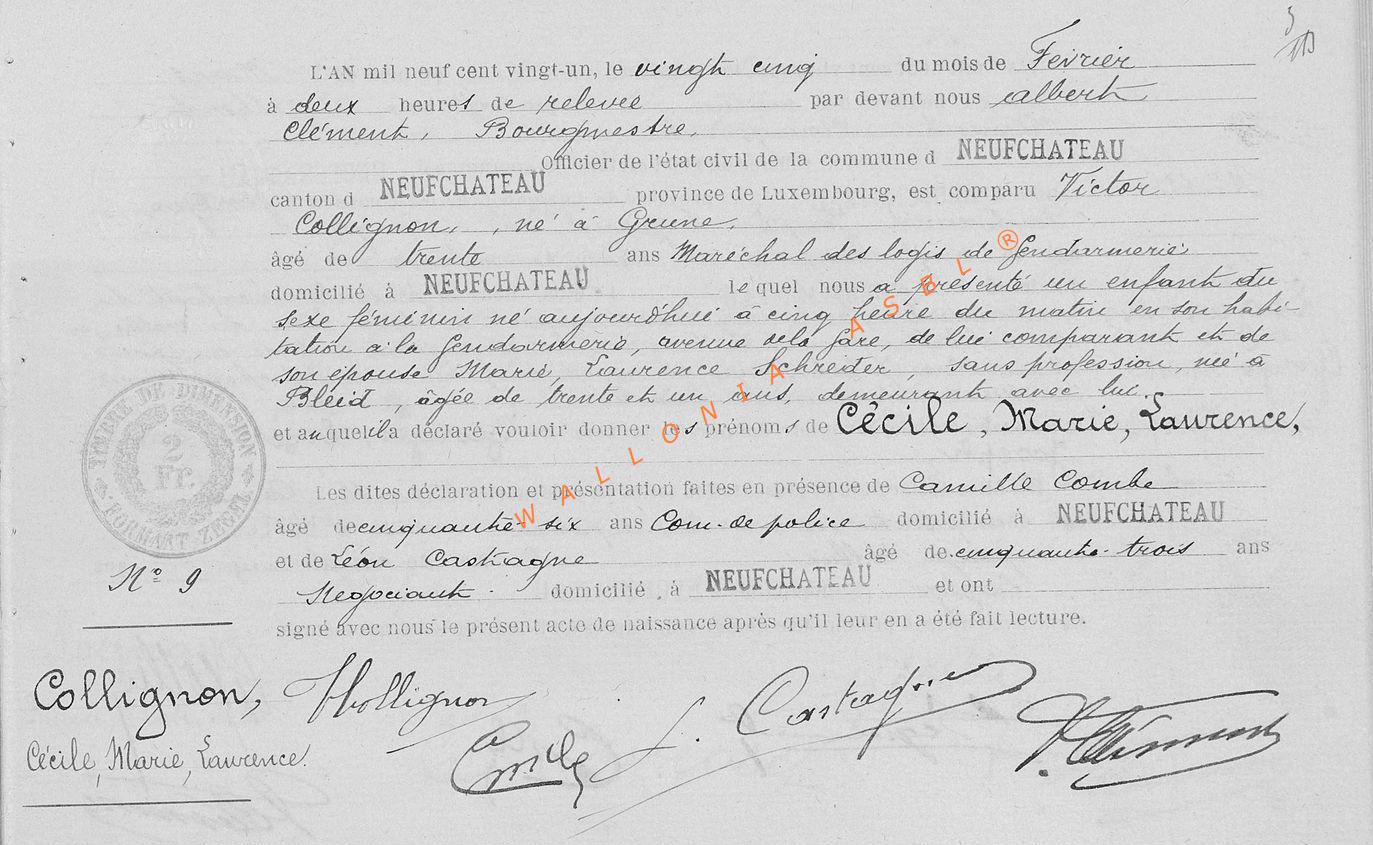 L'AN mil neuf cent vingt-un, le vingt cinq du mois de Fevrier
à deux heures de relevée par devant nous Albert
Clément, Bourgmestre,
Officier de l'état civil de la commune d NEUFCHATEAU
canton d NEUFCHATEAU province de Luxembourg, est comparu Victor
Collignon, né à Grune,
âgé de trente ans Maréchal des logis de Gendarmerie
domicilié à NEUFCHATEAU lequel nous a présenté un enfant du
sexe féminin né aujourd'hui à cinq heure du matin en son habi-
tation à la Gendarmerie, avenue de la Gare, de lui comparant et de
son épouse Marie, Laurence Schreider, sans profession, née à
Bleid, âgée de trente et un ans, demeurant avec lui.
et auquel il a déclaré vouloir donner les prénoms de Cécile, Marie, Laurence,
Les dites déclaration et présentation faites en présence de Camille Combe
âgé de cinquante-six ans Com. de police domicilié à NEUFCHATEAU
et de Léon Castagne âgé de cinquante-trois ans
Negociant. domicilié à NEUFCHATEAU et ont
signé avec nous le présent acte de naissance après qu'il leur en a été fait lecture.
TIMBRE DE DIMENSION
2
Fr.
FORMAAT ZEGEL
N° 9
Collignon,
Cécile, Marie, Laurence.
VCollignon
L. Castagne
Clément
WALLONIA ASBL ®